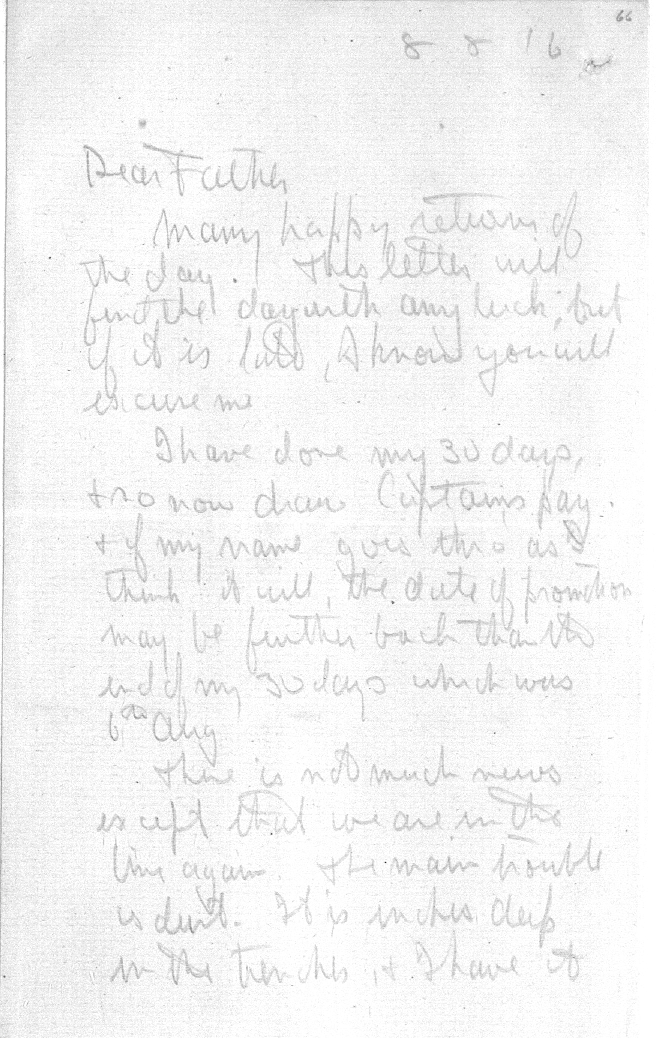 66
8 8 16
Dear Father
Many happy returns of
the day. This letter will
find the day with any luck, but
if it is late, I know you will
excuse me
I have done my 30 days,
& so now draw Captains pay.
& if my name goes thro as I
think it will, the date of promotion
may be further back than the
end of my 30 days which was
6th Aug
There is not much news
except that we are in the
line again. The main trouble
is dust. It is inches deep
in the trenches, & I have it